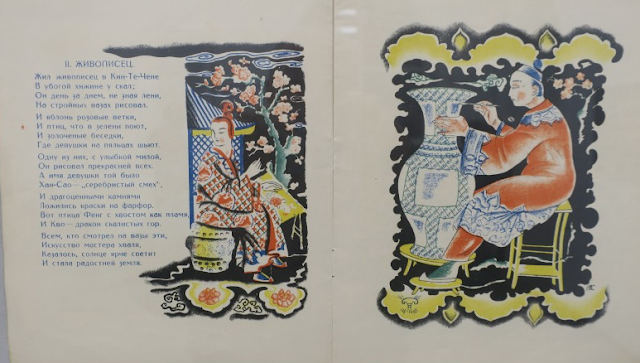 II. ЖИВОПИСЕЦ
Жил живописец в Кин-Те-Чене
В убогой хижине у скал;
Он день за днем, не зная лени,
На стройных вазах рисовал.
И яблонь розовые ветки,
И птиц, что в зелени поют,
И золоченые беседки,
Где девушки на пяльцах шьют.
Одну из них, с улыбкой милой,
Он рисовал прекрасней всех.
А имя девушки той было
Хай-Сао—„серебристый смех",
И драгоценными камнями
Ложились краски на фарфор.
Вот птица Фенг с хвостом как пламя,
И Кво—дракон скалистых гор.
Всем, кто смотрел на вазы эти,
Искусство мастера хваля,
Казалось, солнце ярче светит
И стала радостней земля.